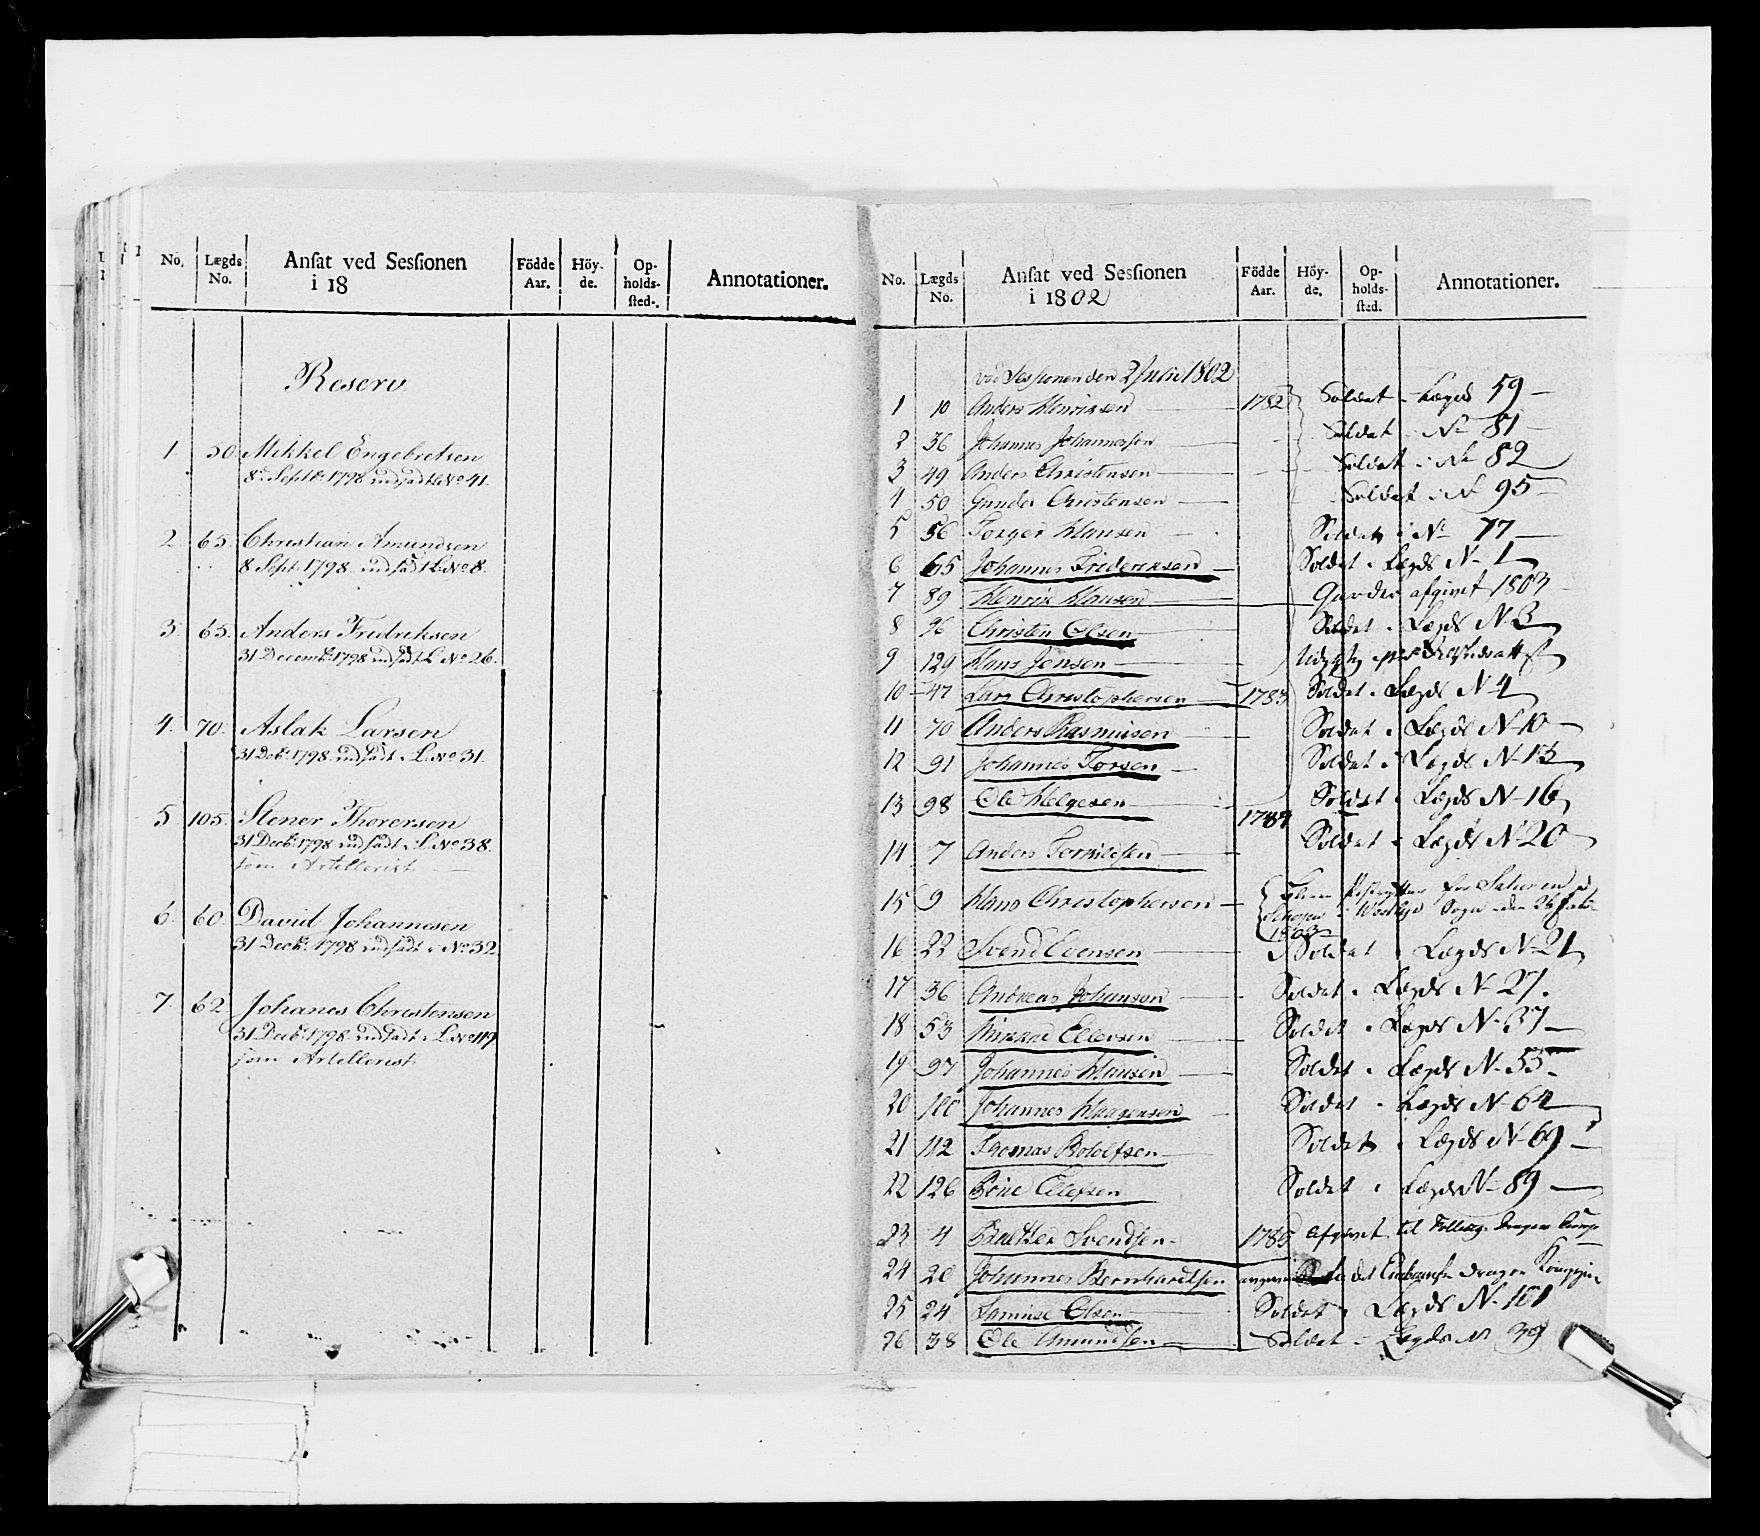 No. Lægds No. Ansat ved Sessionen i 18 Födde Aar. Höyde. Opholdssted. Annotationer.
Reserv
1 50 Mikkel Engebretsen
8de Septbr 1798 indsadt L No 41.
2 65 Christian Amundsen
8 Sept. 1798 indsadt L No 8.
3 65. Anders Fredriksen
31 Decemb: 1798 indsadt L No 26.
4. 70. Aslak Larsen
31 Decb: 1798 indsadt i L. No 31.
5 105. Stener Thorersen
31 Decb: 1798 indsadt i L No 38.
som Artellerist
6. 60 David Johannesen
31 Decbr 1798 indsadt i No 32
7. 62 Johanes Christensen
31 Decbr 1798 indsadt i L No 119
som Artellerist
No. Lægds No. Ansat ved Sessionen i 1802 Födde Aar. Höyde. Opholdssted. Annotationer.
ved Sessionen den 2 Julii 1802
1 10 Anders Henriksen 1782 Soldat i Lægd 59
2 36 Johannes Johannessen Soldat i No 81
3 49 Anders Christensen Soldat i No 82
4 50 Gunder Christensen Soldat i No 95
5 56 Torger Hansen Soldat i No 77
6 65 Johannes Frideriksen Soldat i Lægds No 1
7 89 Henrik Hansen Garder afgivet 1803
8 96 Christen Olsen Soldat i Lægds No 3
9 129 Hans Jensen
10 47 Lars Christophersen 1783 Soldat i Lægds No 4
11 70 Anders Rasmussen Soldat i Lægds No 10
12 91 Johannes Torsen Soldat i Lægds No 15
13 98 Ole Helgesen Soldat i Lægds No 16
14 7 Anders Torkildsen 1784 Soldat i Lægds No 20
15 9 Hans Christophersen
1803
16 22 Svend Evensen Soldat i Lægds No 21
17 36 Andreas Johansen Soldat i Lægds No 27.
18 53 Ellevsen Soldat i Lægds No 37
19 97 Johannes Hansen Soldat i Lægds No 55
20 100 Johannes Haagensen Soldat i Lægds No 64
21 112 Thomas Rololfsen Soldat i Lægds No 69
22 126 Ellefsen Soldat i Lægds No 89
23 4 Balther Svendsen 1785 Afgivet til Dragon Comp
24 20 Johannes Bernhardtsen det Dragon Kompagnie
25 24 Olsen Soldat i Lægds No 101
26 38 Ole Amundsen Soldat i Lægds No 39